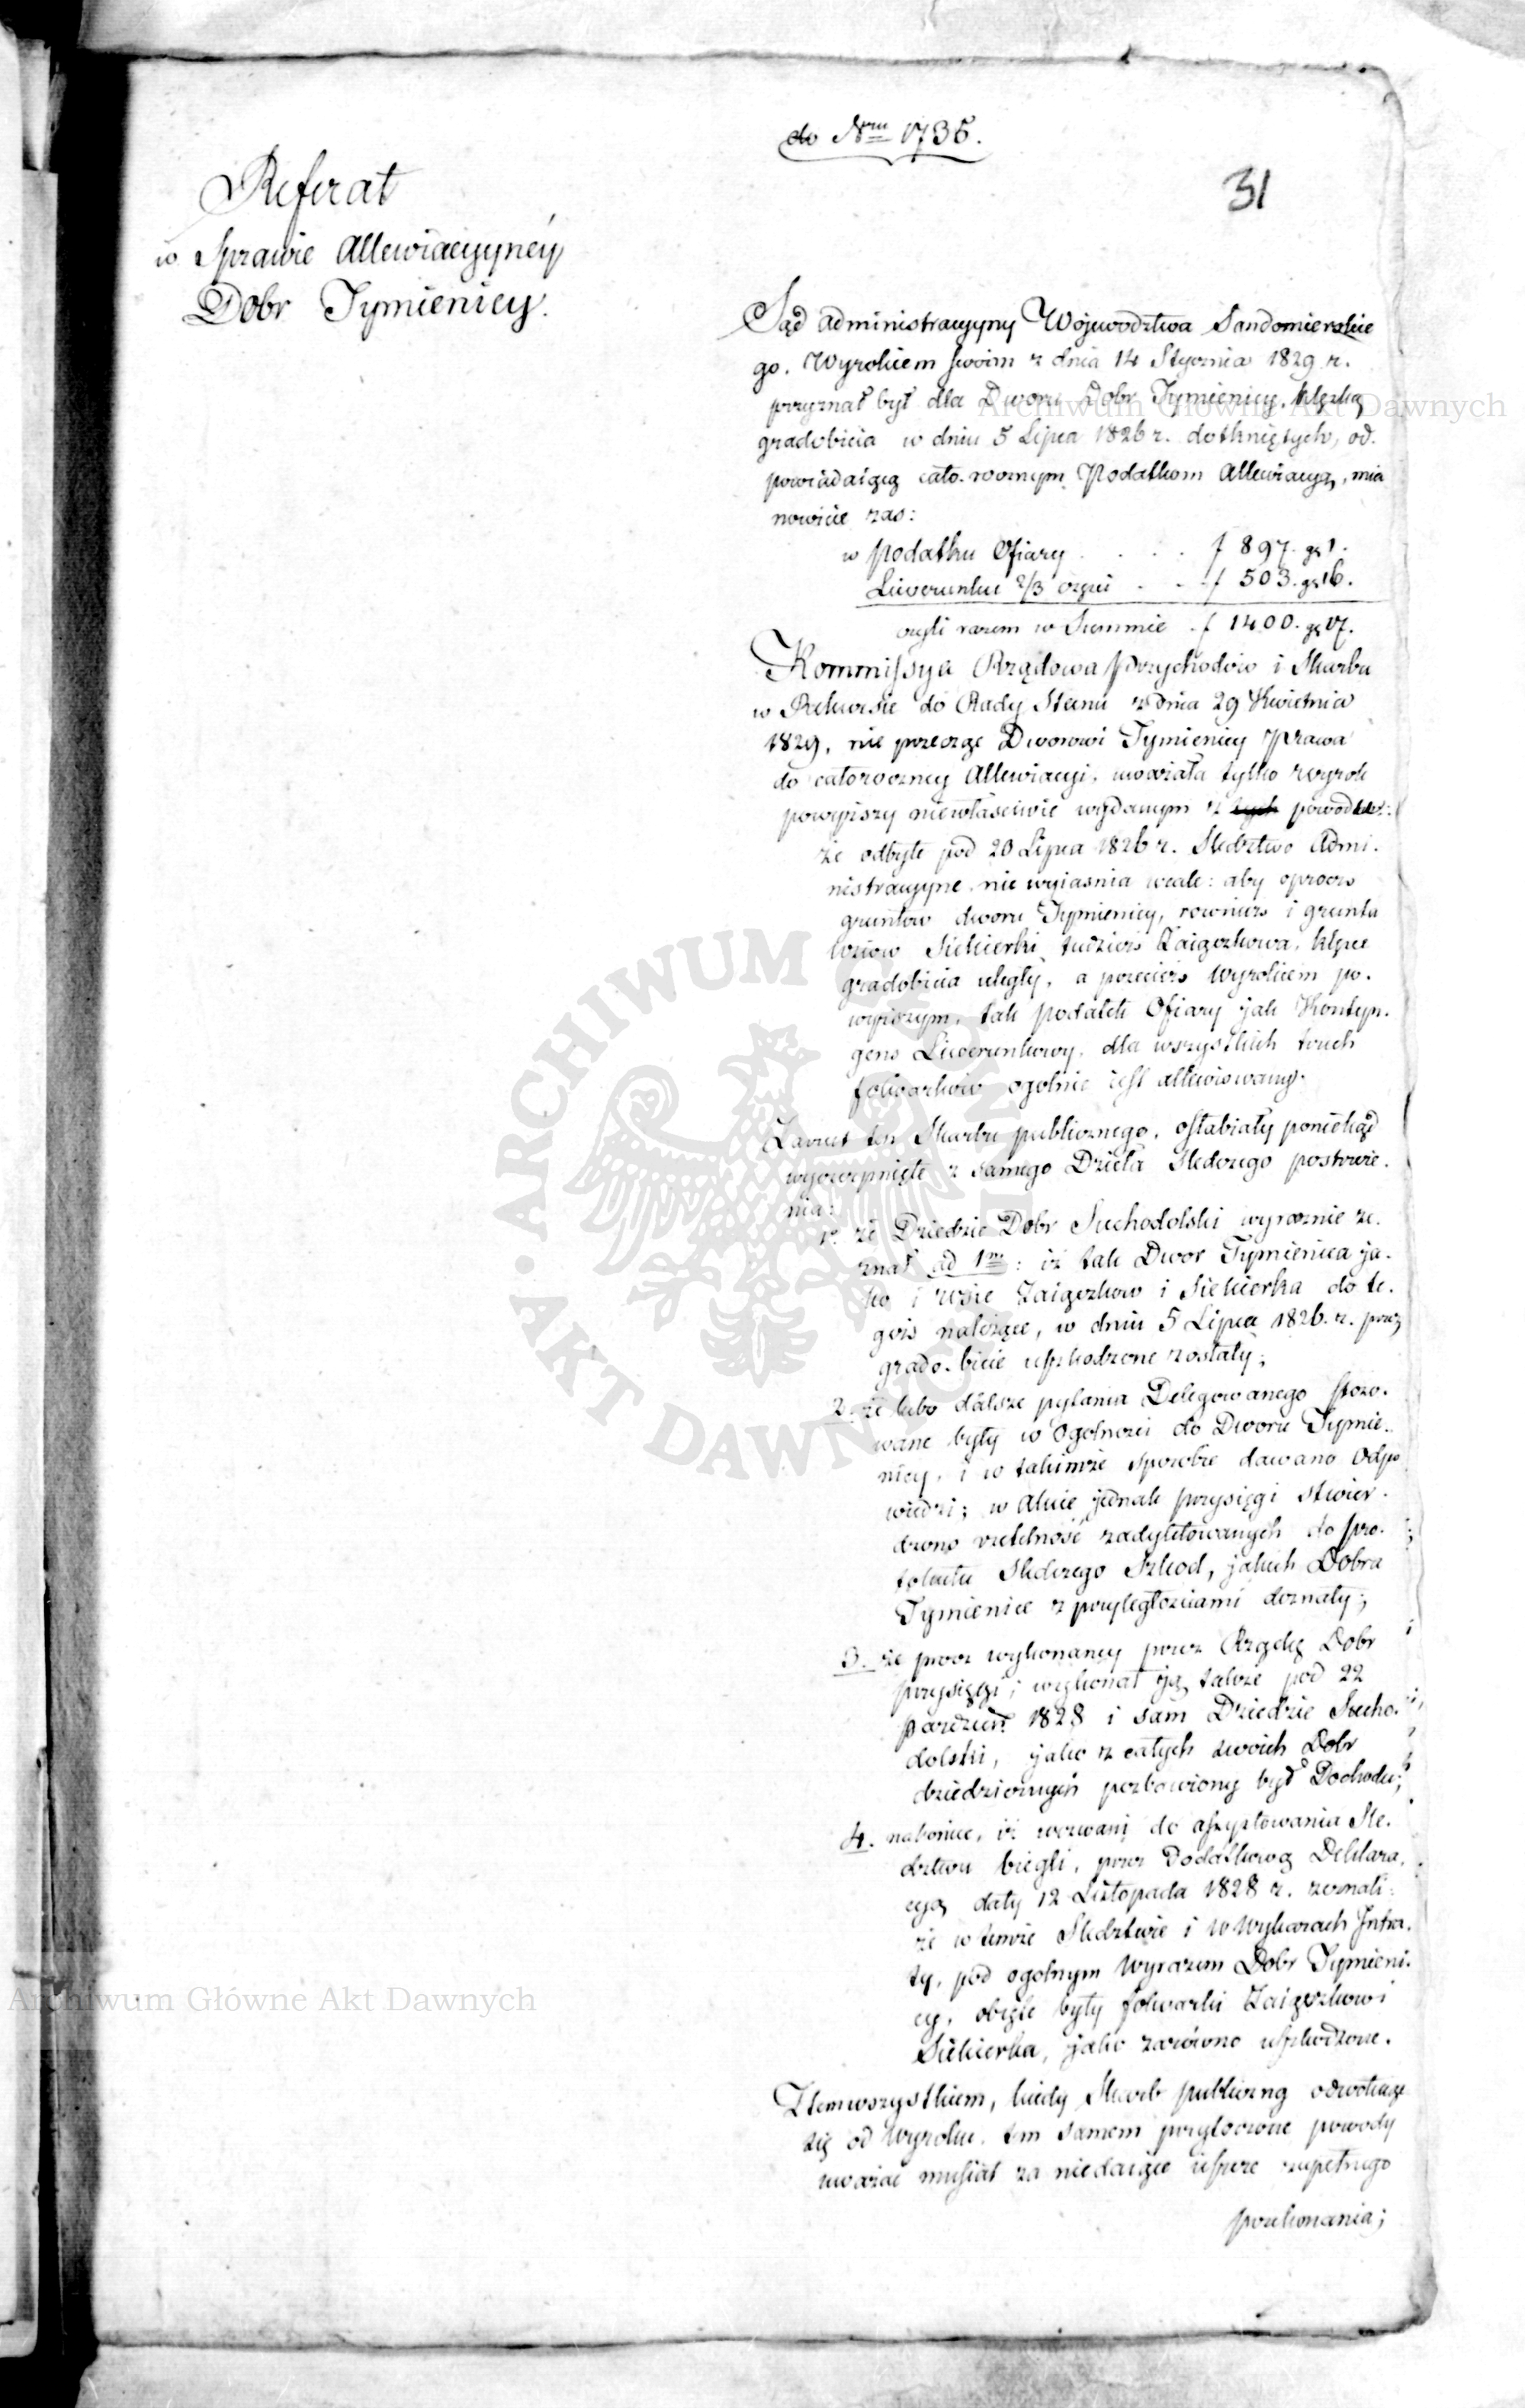 do Nru 1735.
31
Referat
w Sprawie Allewiacyyney
Dobr Tymienicy.
Sąd Administracyyny Woiewodztwa Sandomierskie
go. Wyrokiem swoim z dnia 14 Stycznia 1829 r.
przyznał był dla Dworu Dobr Tymienicy, klęską
gradobicia w dniu 5 Lipca 1826 r. dotkniętych, od-
powiadaiącą cało-rocznym Podatkom Allewiacyą, mia
nowicie zas:
w podatku Ofiary . . . . f 897. gr 1.
Liwerunku 2/3 części . . . f 503. gr 16.
czyli razem w Summie . f 1400. gr 17.
Kommissya Rządowa Przychodów i Skarbu
w Rekursie do Rady Stanu z dnia 29 Kwietnia
1829, nie przecząc Dworowi Tymienicy prawa
do całoroczney Allewiacyi, uważała tylko wyrok
powyższy niewłaściwie wydanym z tych powodów:
że odbyte pod 20 Lipca 1826 r. Sledztwo Admi-
nistracyyne nie wyiasnia wcale: aby oprocz
gruntow dworu Tymienicy, rownież i grunta
wsiow Siekierki tudzież Zaiączkowa, klęsce
gradobicia uległy, a przecież Wyrokiem po-
wyższym, tak podatek Ofiary jak Kontyn-
gens Liwerunkowy, dla wszystkich trzech
folwarków ogolnie iest allewiowany.
Zarzut ten Skarbu publicznego, osłabiały poniekąd
wyczerpnięte z samego Dzieła Sledczego postrzeże-
nia:
1o. że Dziedzic Dobr Suchodolski wyraznie ze-
znał ad 1m: iż tak Dwor Tymienica ja-
ko i wsie Zaiączkow i Siekierka do te-
goż należące, w dniu 5 Lipca 1826. r. przez
grado-bicie uszkodzone zostały;
2. że lubo dalsze pytania Delegowanego stoso-
wane były w Ogolnosci do Dworu Tymie-
nicy, i w takimże sposobie dawano Odpo
wiedzi; w Akcie jednak przysięgi stwier-
dzono rzetelność zadyktowanych do pro-
tokułu Sledczego Szkod, jakich Dobra
Tymienice z przyległosciami doznały;
3. że procz wykonaney przez Rządcę Dobr
przysięgi; wykonał ją także pod 22
Pazdzier. 1828 i sam Dziedzic Sucho-
dolski, jako z całych swoich Dobr
dziedzicznych pozbawiony był Dochodu;
4. nakoniec, iż wezwani do assystowania Sle-
dztwu biegli, przez Dodatkową Deklara-
cyą daty 12 Listopada 1828 r. zeznali:
że w temże Sledztwie i w Wykazach Intra-
ty, pod ogolnym Wyrazem Dobr Tymieni-
cy, objęte były folwarki Zaiączkow i
Siekierka, jako zarówno uszkodzone.
Ztemwszystkiem, kiedy Skarb publiczny odwołując
się od Wyroku, tem samem przytoczone powody
uważać musiał za niedaiące ieszcze zupełnego
przekonania;
Archiwum Główne Akt Dawnych
Archiwum Główne Akt Dawnych